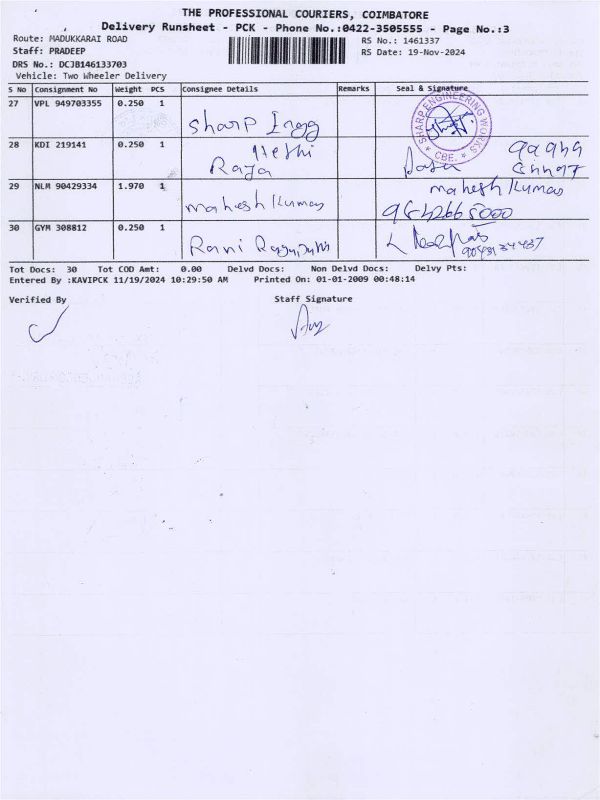 THE PROFESSIONAL COURIERS, COIMBATORE
Delivery Runsheet - PCK - Phone No.:0422-3505555 - Page No.:3
Route: MADUKKARAI ROAD
RS No.: 1461337
Staff: PRADEEP
RS Date: 19-Nov-2024
DRS No.: DCJB146133703
Vehicle: Two Wheeler Delivery
S No Consignment No Weight PCS Consignee Details Remarks Seal & Signature
27 VPL 949703355 0.250 1 Sharp
SHARP ENGINEERING WORKS
* CBE. *
28 KDI 219141 0.250 1
Raja
29 NLM 90429334 1.970 1 mahesh Kumar mahesh Kumar
9842665000
30 GYM 308812 0.250 1 Rani
Tot Docs: 30 Tot COD Amt: 0.00 Delvd Docs: Non Delvd Docs: Delvy Pts:
Entered By :KAVIPCK 11/19/2024 10:29:50 AM Printed On: 01-01-2009 00:48:14
Verified By Staff Signature